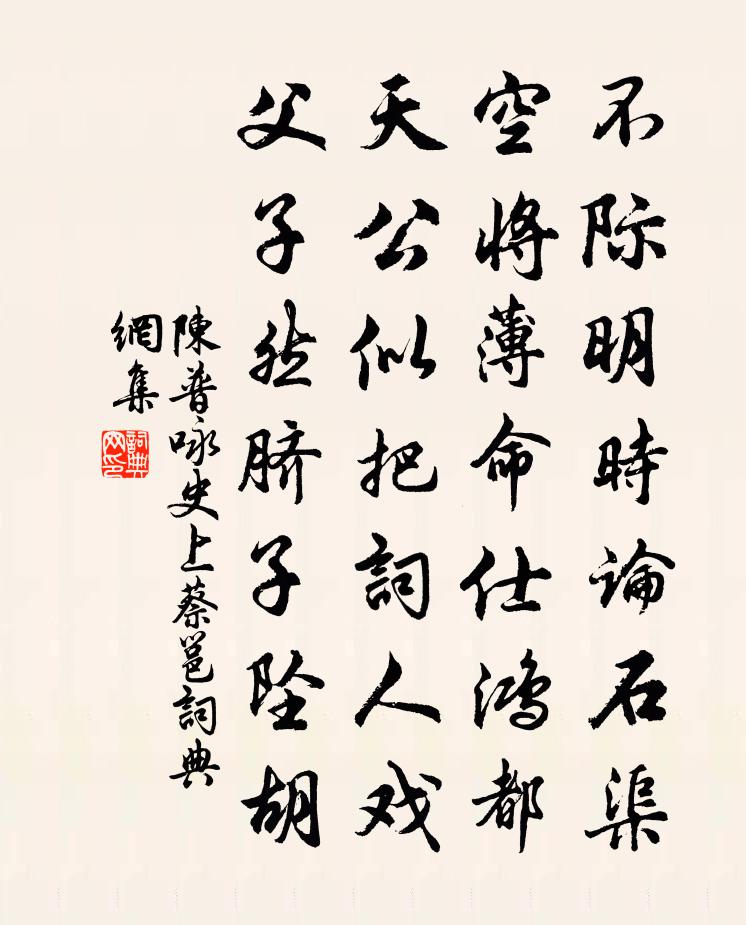 不际明時論石渠
空將薄命仕鸿都
天公似把詞人戏
父子然脐子坠胡
陳普咏史上蔡邕詞典
網集
詞典
网印